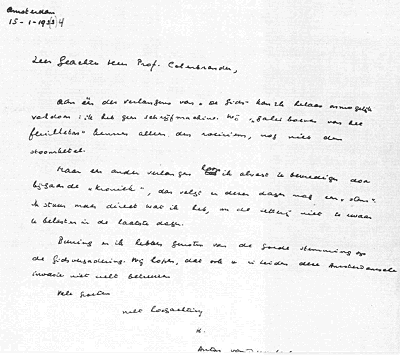 Amsterdam
15-1-1934
Zeer Geachte Heer Prof. Colenbrander,
Aan één der verlangens van "De Gids" kan ik helaas onmogelijk
voldoen: ik heb geen schrijfmachine. Wij "galeiboeven van het
feuilleton" kennen alleen den roeiriem, nog niet den
stoomketel.
Maar een ander verlangen hoop ik alvast te bevredigen door
bijgaande "kroniek", dan volgt in dezen dagen nog een "stem".
Ik stuur maar direct wat ik heb, om de zetterij niet te zwaar
te belasten in de laatste dagen.
en ik hebben genoten van de goede stemming op
de Gidsvergadering. Wij hopen, dat ook u in Leiden deze Amsterdamsche
invasie niet zult betreuren
Vele groeten
met hoogachting
Anton van